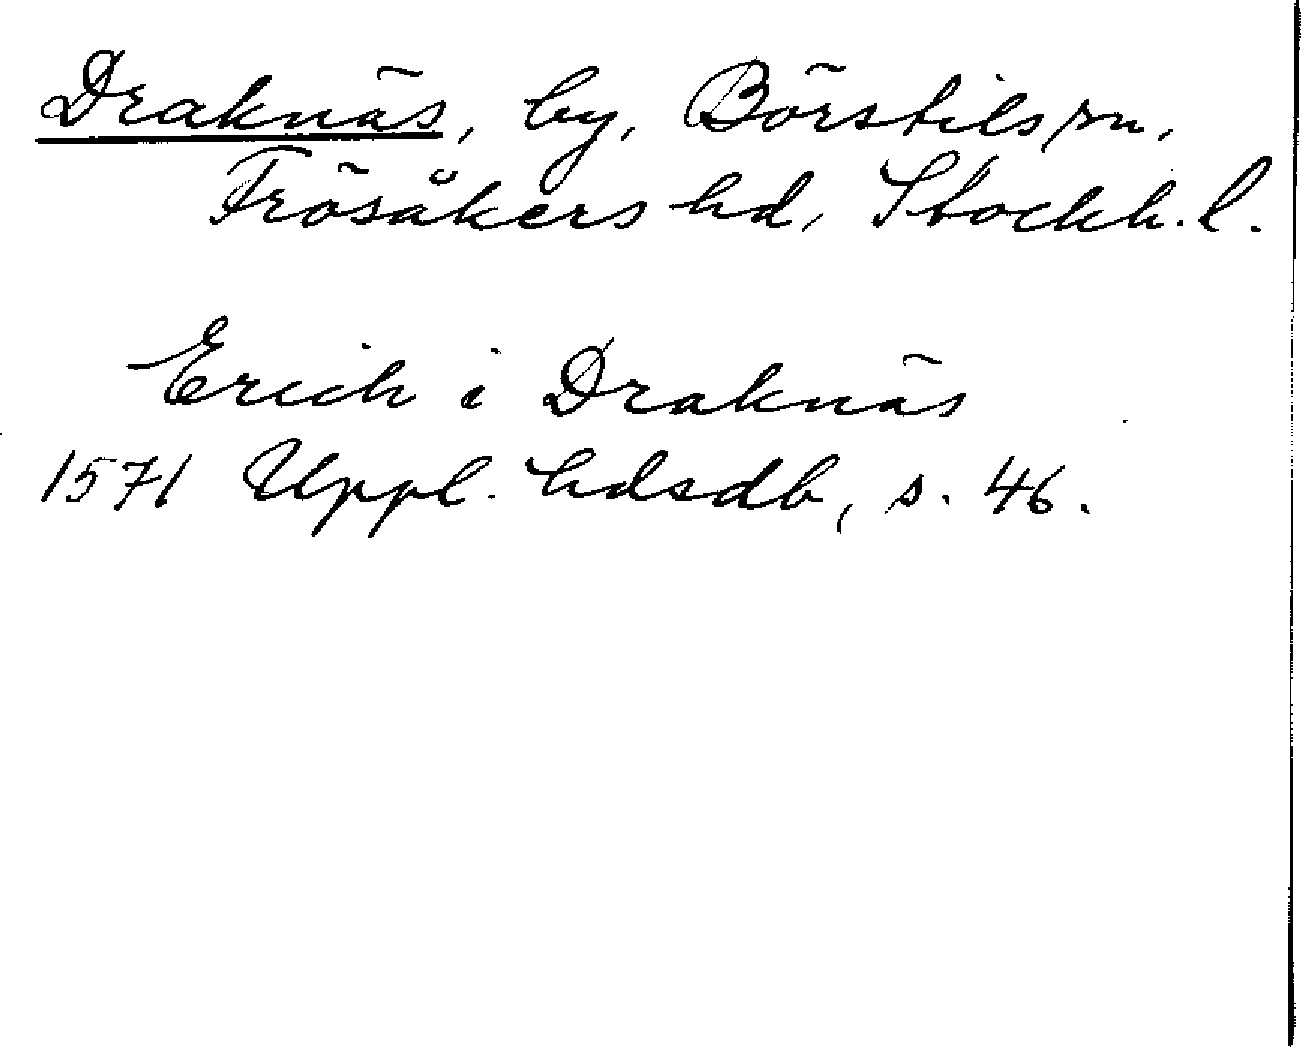 Draknäs, by, Börstils sn,
Frösåkers hd, Stockh. l.
Erich i Draknäs
1571 Uppl. hdsdb, s. 46.